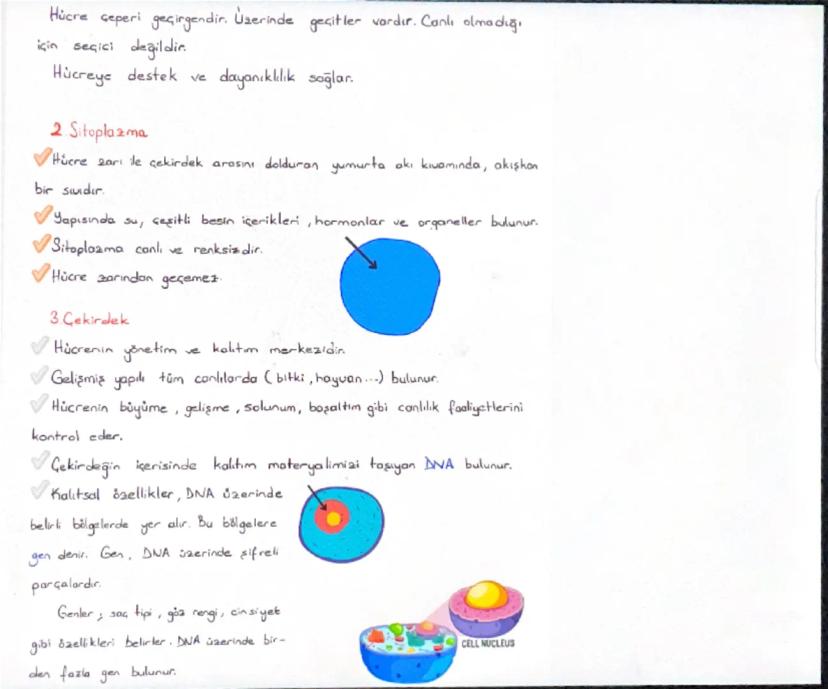 Hücre çeperi geçirgendir. Üzerinde geçitler vardır. Canlı olmadığı
için seçici değildir.
Hücreye destek ve dayanıklılık sağlar.
2.Sitoplazma
Hücre zarı ile çekirdek arasını dolduran yumurta akı kıvamında, akışkan
bir sıvıdır.
Yapısında su, çeşitli besin içerikleri, hormonlar ve organeller bulunur.
Sitoplazma canlı ve renksizdir.
Hücre zarından geçemez.
3.Çekirdek
Hücrenin yönetim ve kalıtım merkezidir.
Gelişmiş yapılı tüm canlılarda (bitki, hayvan...) bulunur.
Hücrenin büyüme, gelişme, solunum, boşaltım gibi canlılık faaliyetlerini
kontrol eder.
Çekirdeğin içerisinde kalıtım materyalimizi taşıyan DNA bulunur.
Kalıtsal özellikler, DNA üzerinde
belirli bölgelerde yer alır. Bu bölgelere
gen denir. Gen, DNA üzerinde şifreli
parçalardır.
Genler; saç tipi, göz rengi, cinsiyet
gibi özellikleri belirler. DNA üzerinde bir-
den fazla gen bulunur.
CELL NUCLEUS